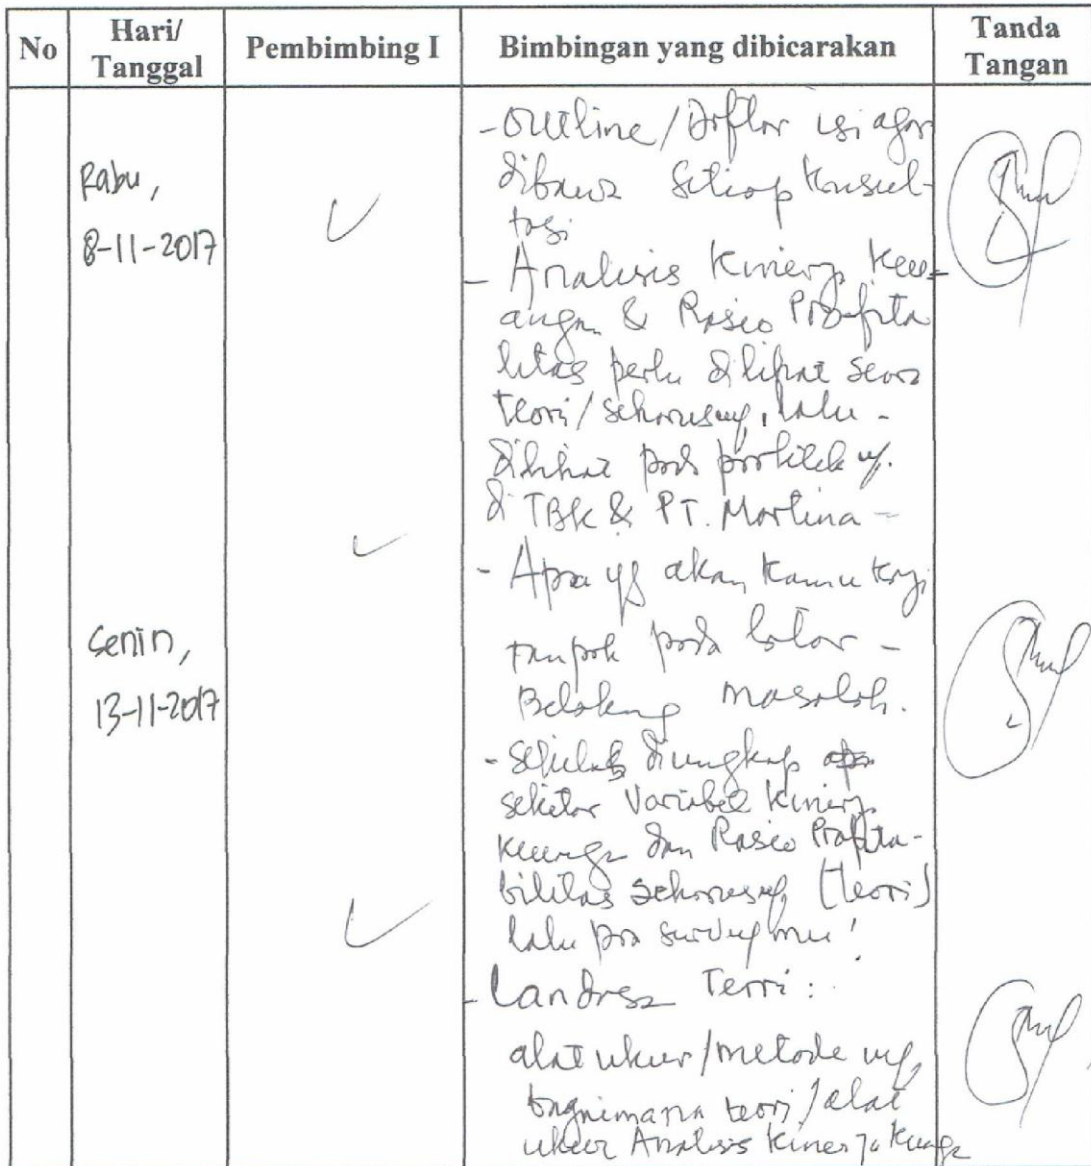 No
Hari/
Tanggal
Pembimbing I
Bimbingan yang dibicarakan
Tanda
Tangan
Rabu,
8-11-2017
- Outline/Daftar isi agar
dibawa setiap konsul-
tasi
- Analisis Kinerja Keu-
angan & Rasio Profita
litas perlu dilihat secara
teori/seharusnya, lalu -
dilihat pada
di TBK & PT. Martina -
Senin,
13-11-2017
- Apa yg akan kamu kaji
tampak pada latar -
Belakang masalah.
- diungkap
sekitar Variabel kinerja
keuanga dan Rasio Profita-
bilitas seharusnya (teori)
lalu pra surveymu!
- Landasa Teori :
alat ukur/metode
bagaimana teori/alat
ukur Analisis Kinerja Keuanga